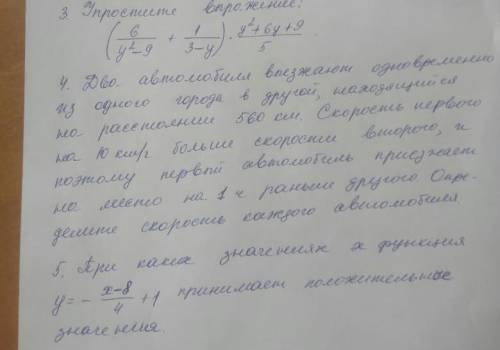 3. Упростите выражение:
(6/(y²-9) + 1/(3-y)) · (y²+6y+9)/5
4. Два автомобиля въезжают одновременно
из одного города в другой, находящийся
на расстоянии 560 км. Скорость первого
на 10 км/ч больше скорости второго, и
поэтому первый автомобиль приезжает
на место на 1 ч раньше другого. Опре-
делите скорость каждого автомобиля
5. При каких значениях x функция
y = - (x-8)/4 + 1 принимает положительные
значения.